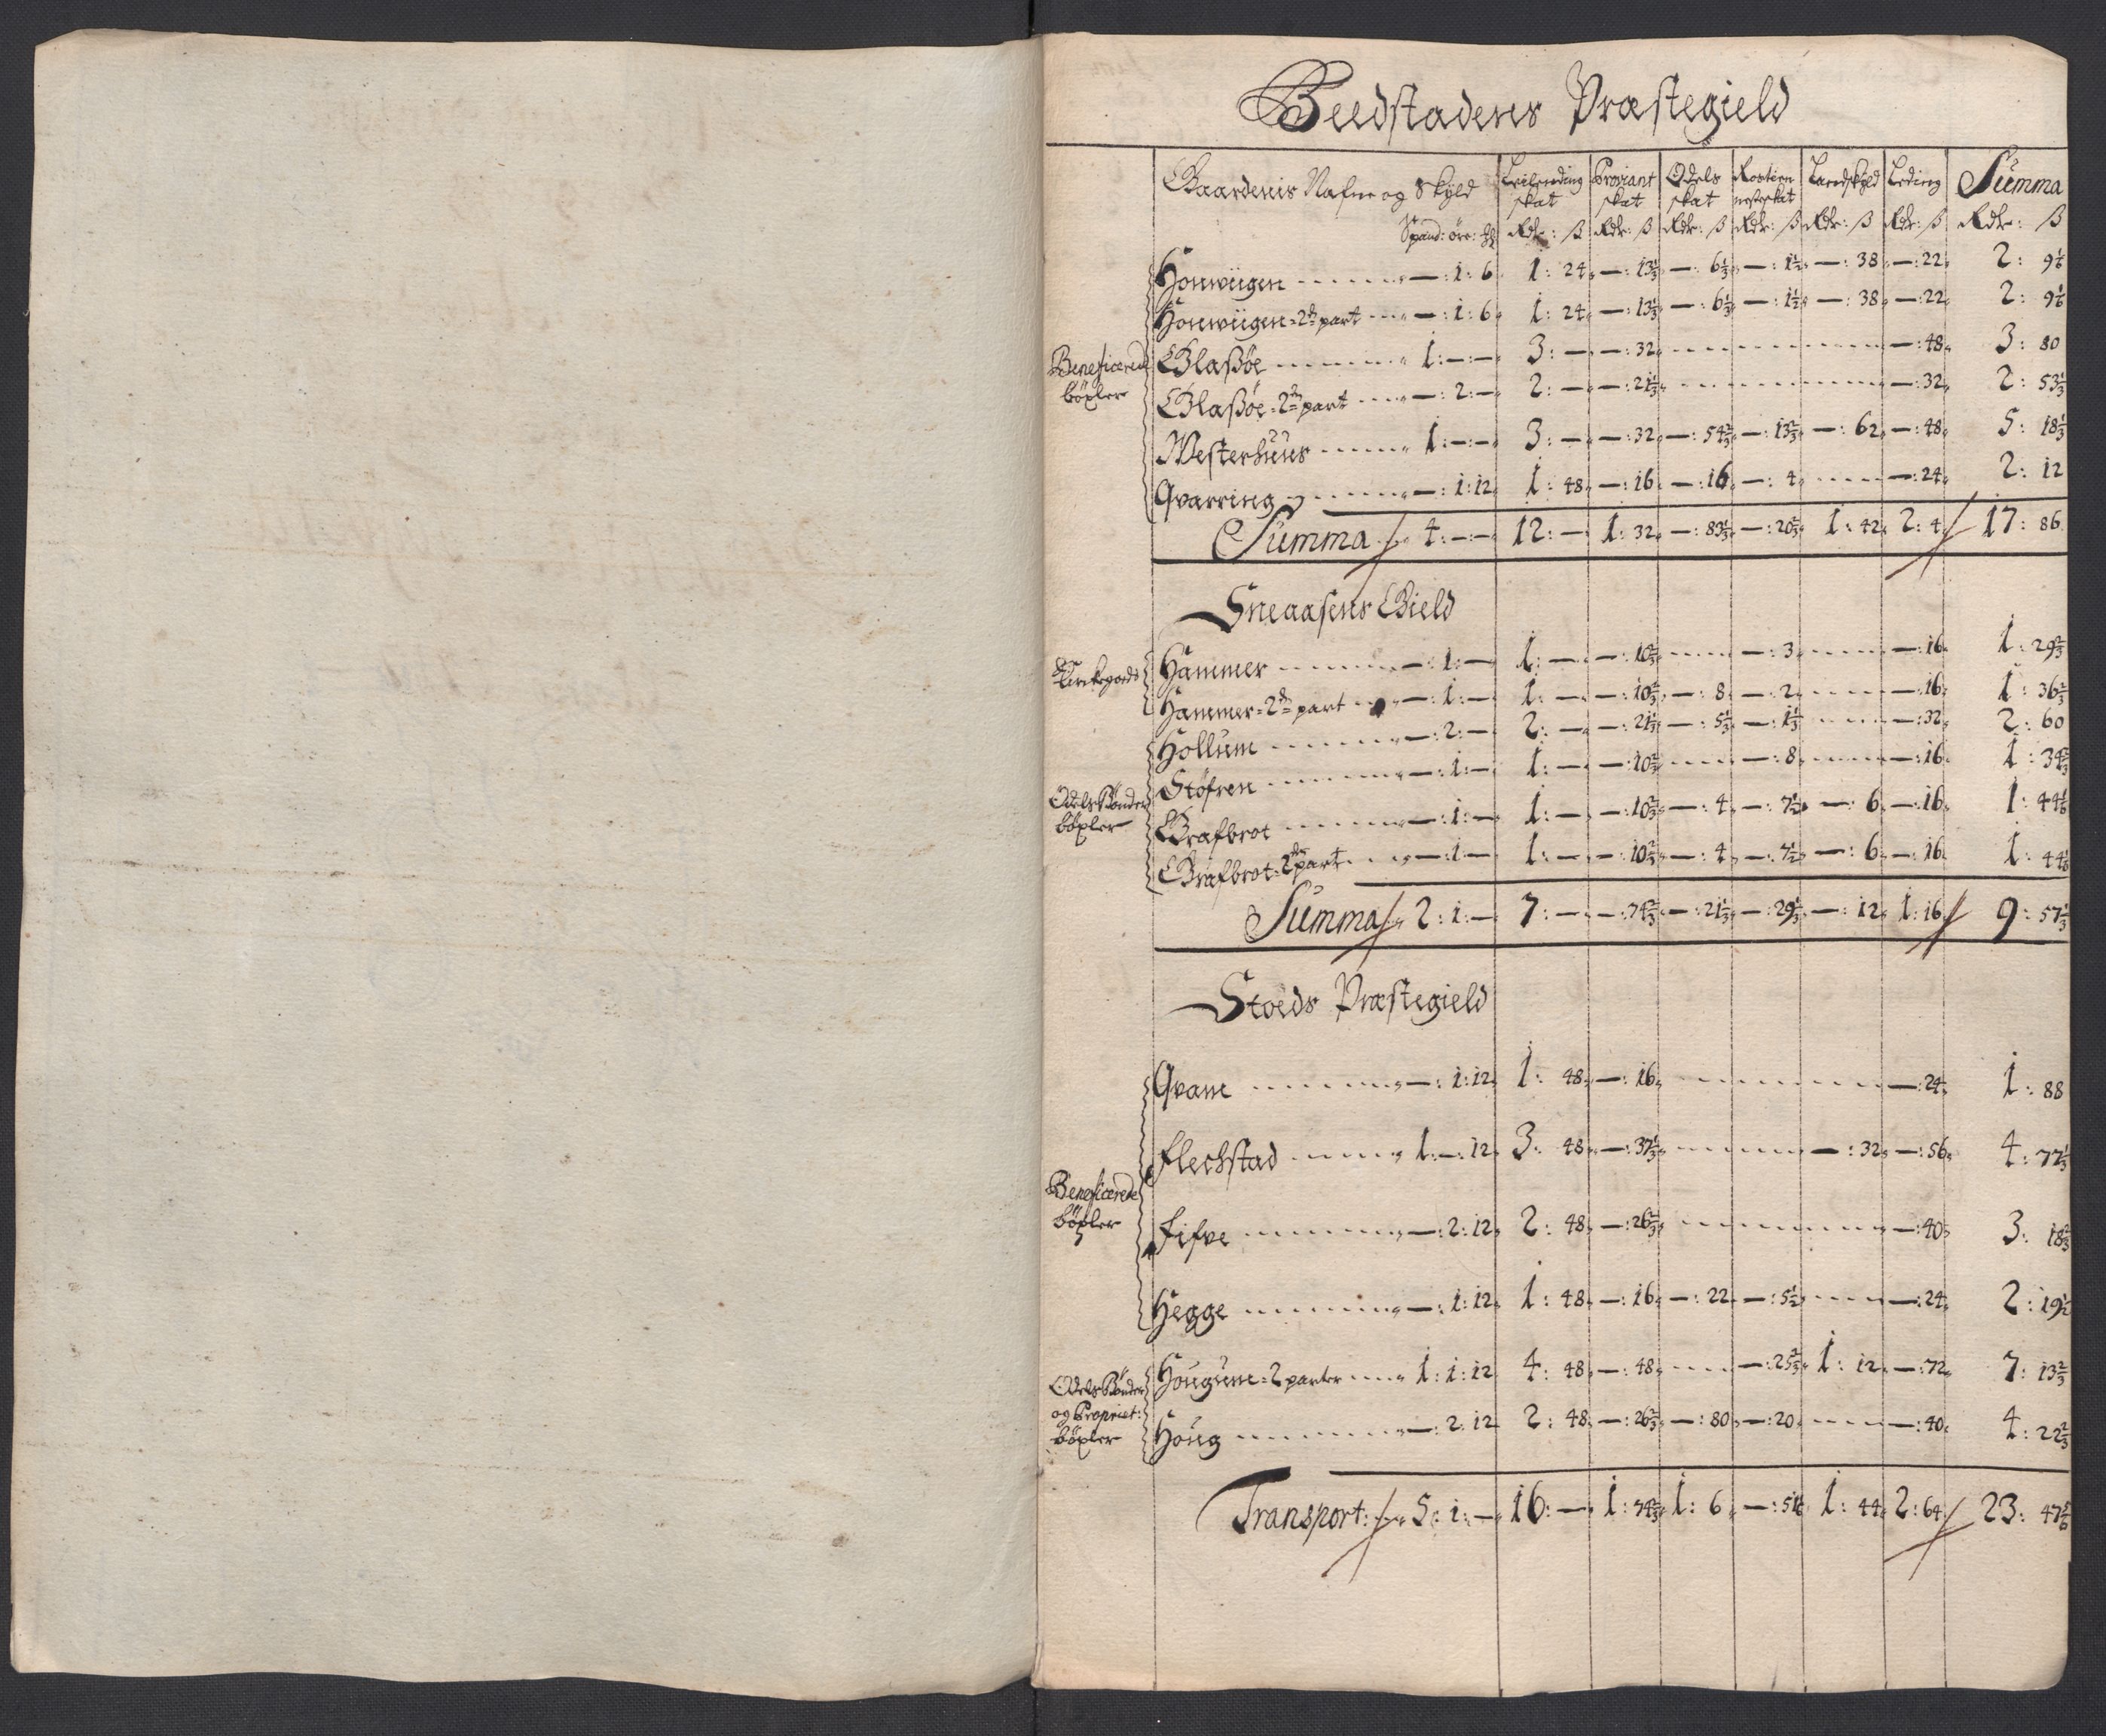 Beedstadens Præstegield
Gaardenis Nafne og Skyld Leilending skat Proviant skat Odels skat Rostienneste skat Landskyld Leding Summa
Spand: øre: Rdr: ß Rdr: ß Rdr: ß Rdr: ß Rdr: ß Rdr: ß Rdr: ß
Honwiigen —: 1: 6 1: 24 —: 13⅓ —: 6⅓ —: 1½ —: 38 —: 22 2: 9⅙
Honwiigen 2den part —: 1: 6 1: 24 —: 13⅓ —: 6⅓ —: 1½ —: 38 —: 22 2: 9⅙
Beneficerede böxler
Glaßöe 1: —: — 3: — —: 32 —: 48 3: 80
Glaßöe 2den part —: 2: — 2: — —: 21⅓ —: 32 2: 53⅓
Westerhuus 1: —: — 3: — —: 32 —: 54⅔ —: 13⅔ —: 62 —: 48 5: 18⅓
Qvarring —: 1: 12 1: 48 —: 16 —: 16 —: 4 —: 24 2: 12
Summa 4: —: — 12: — 1: 32 —: 83⅓ —: 20⅔ 1: 42 2: 4 17: 86
Sneaasens Gield
Kirkegods
Hammer —: 1: — 1: — —: 10⅔ —: 3 —: 16 1: 29⅔
Hammer 2den part —: 1: — 1: — —: 10⅔ —: 8 —: 2 —: 16 1: 36⅔
Hollum —: 2: — 2: — —: 21⅓ —: 5⅓ —: 1⅓ —: 32 2: 60
Støfren —: 1: — 1: — —: 10⅔ —: 8 —: 16 1: 34⅔
Odels Bønder böxler
Grafbrot —: 1: — 1: — —: 10⅔ —: 4 —: 7½ —: 6 —: 16 1: 44⅙
Grafbrot 2den part —: 1: — 1: — —: 10⅔ —: 4 —: 7½ —: 6 —: 16 1: 44⅙
Summa 2: 1: — 7: — —: 74⅔ —: 21⅓ —: 29⅓ —: 12 1: 16 9: 57⅓
Stoeds Præstegield
Qvam —: 1: 12 1: 48 —: 16 —: 24 1: 88
Flechstad 1: —: 12 3: 48 —: 37⅓ —: 32 —: 56 4: 77⅓
Beneficerede böxler
Fifve —: 2: 12 2: 48 —: 26⅔ —: 40 3: 18⅔
Hegge —: 1: 12 1: 48 —: 16 —: 22 —: 5½ —: 24 2: 19½
Odels Bönder og Propriet: böxler
Hougum 2 parter 1: 1: 12 4: 48 —: 48 —: 25⅔ 1: 12 —: 72 7: 13⅔
Houg —: 2: 12 2: 48 —: 26⅔ —: 80 —: 20 —: 40 4: 22⅔
Transport: 5: 1: — 16: — 1: 74⅔ 1: 6 —: 51⅙ 1: 44 2: 64 23: 47⅚